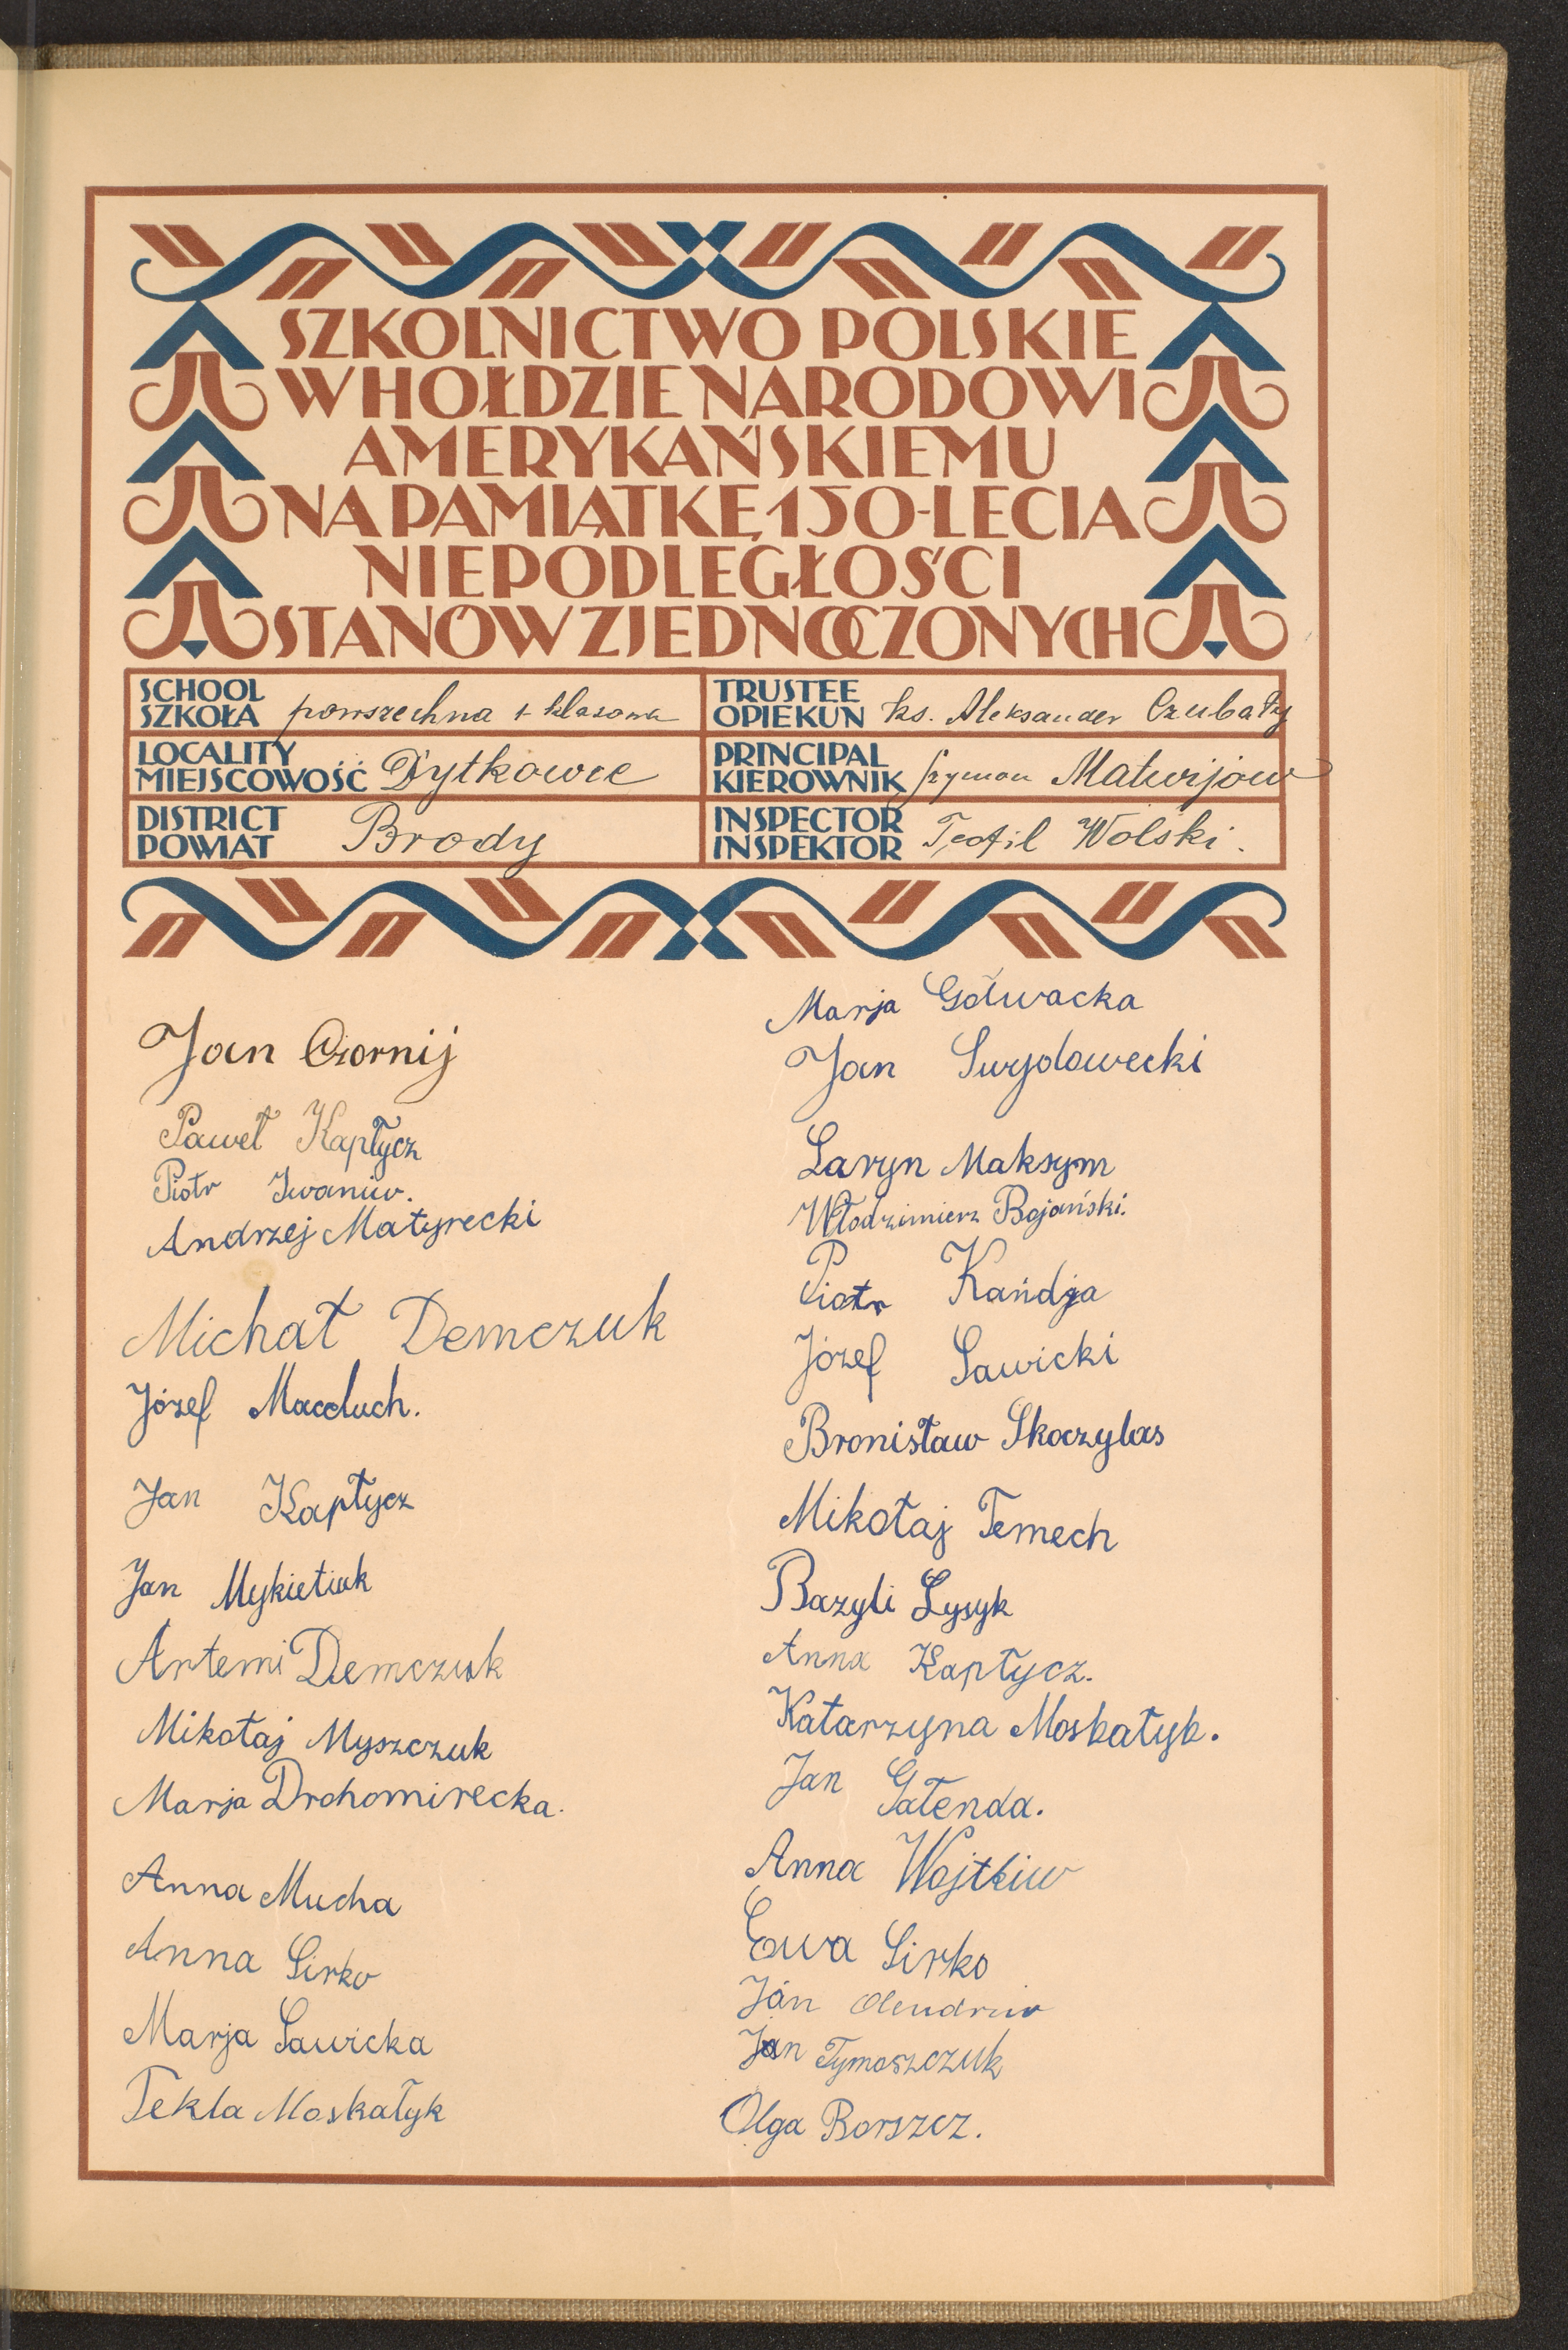 SZKOLNICTWO POLSKIE
W HOŁDZIE NARODOWI
AMERYKAŃSKIEMU
NA PAMIĄTKĘ 150-LECIA
NIEPODLEGŁOŚCI
STANÓW ZJEDNOCZONYCH
SCHOOL
SZKOŁA powszechna 1 klasowa
LOCALITY
MIEJSCOWOŚĆ Dytkowce
DISTRICT
POWIAT Brody
TRUSTEE
OPIEKUN ks. Aleksander Czubaty
PRINCIPAL
KIEROWNIK Szymon Matwijow
INSPECTOR
INSPEKTOR Teofil Wolski.
Jan Czornij
Paweł Kapłycz
Piotr Iwaniw.
Andrzej Matyrecki
Michał Demczuk
Józef Macduch.
Jan Kapłycz
Jan Mykietiuk
Artemi Demczuk
Mikołaj Myszczuk
Marja Drohomirecka.
Anna Mucha
Anna Sirko
Marja Sawicka
Tekla Moskałyk
Marja Gołwacka
Jan Swydowecki
Laryn Maksym
Włodzimierz Bojański.
Piotr Kandja
Józef Sawicki
Bronisław Skoczylas
Mikołaj Temech
Bazyli Łysyk
Anna Kapłycz.
Katarzyna Moskałyk.
Jan Gałenda.
Anna Wojtkiw
Ewa Sirko
Jan
Jan Tymoszczuk
Olga Borszcz.